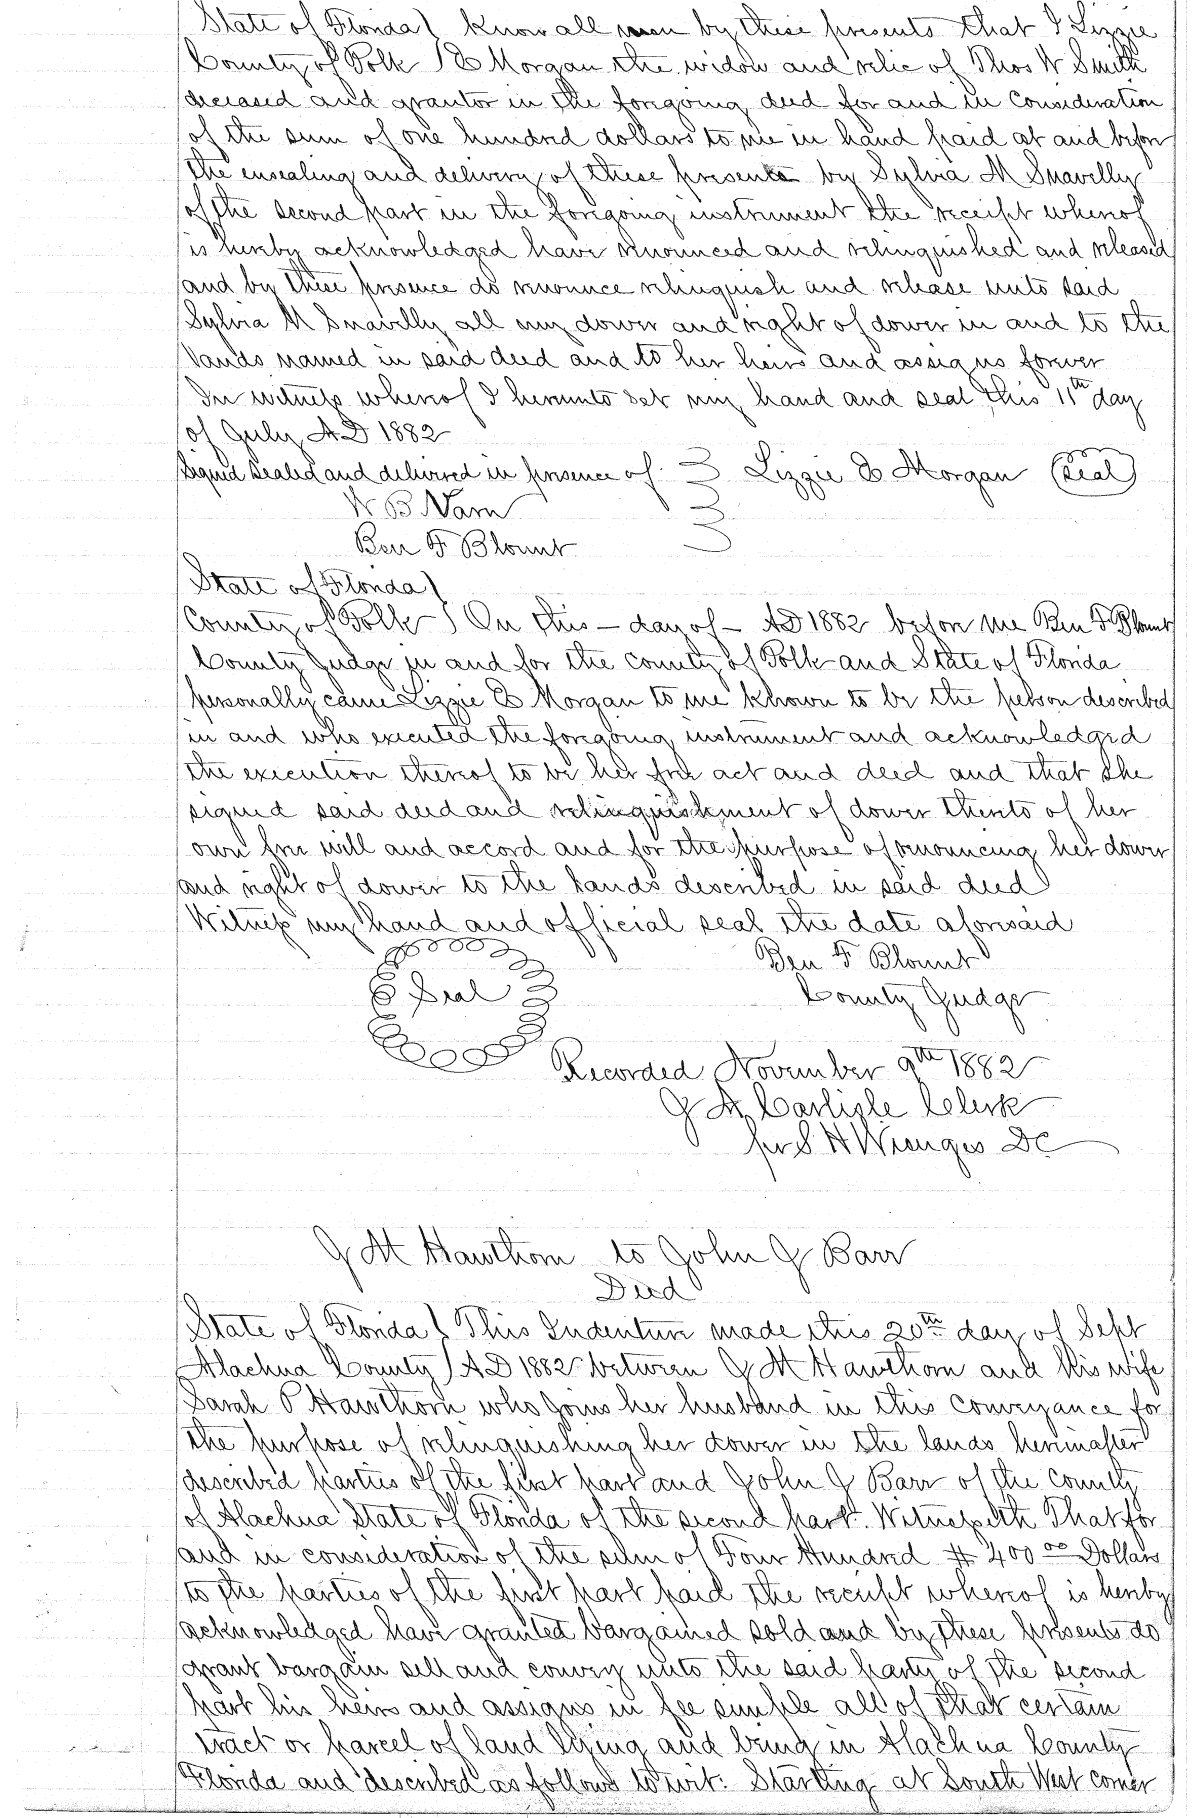 State of Florida } Know all men by these presents that I Lizzie
County of Polk } E Morgan the widow and relic of Thos W Smith
deceased and grantor in the foregoing deed for and in consideration
of the sum of one hundred dollars to me in hand paid at and before
the ensealing and delivery of these presents by Sylvia M Snavelly
of the second part in the foregoing instrument the receipt whereof
is hereby acknowledged have renounced and relinquished and released
and by these presence do renounce relinquish and release unto said
Sylvia M Snavelly all my dower and right of dower in and to the
lands named in said deed and to her heirs and assigns forever
In witness whereof I hereunto set my hand and seal this 11th day
of July AD 1882
Signed sealed and delivered in presence of } Lizzie E Morgan (Seal)
W B Varn
Ben F Blount
State of Florida }
County of Polk } On this – day of – AD 1882 before me Ben F Blount
County Judge in and for the county of Polk and State of Florida
personally came Lizzie E Morgan to me known to be the person described
in and who executed the foregoing instrument and acknowledged
the execution thereof to be her free act and deed and that she
signed said deed and relinquishment of dower thereto of her
own free will and accord and for the purpose of renouncing her dower
and right of dower to the lands described in said deed
Witness my hand and official seal the date aforesaid
Ben F Blount
Seal County Judge
Recorded November 9th 1882
J A Carlisle Clerk
pr S H Wienges DC
J M Hawthorn to John J Barr
Deed
State of Florida } This Indenture made this 20th day of Sept
Alachua County } AD 1882 between J M Hawthorn and his wife
Sarah P Hawthorn who joins her husband in this conveyance for
the purpose of relinquishing her dower in the lands hereinafter
described parties of the first part and John J Barr of the county
of Alachua State of Florida of the second part. Witnesseth That for
and in consideration of the sum of Four Hundred $ 400 00 Dollars
to the parties of the first part paid the receipt whereof is hereby
acknowledged have granted bargained sold and by these presents do
grant bargain sell and convey unto the said party of the second
part his heirs and assigns in fee simple all of that certain
tract or parcel of land lying and being in Alachua County
Florida and described as follows to wit: Starting at South West corner